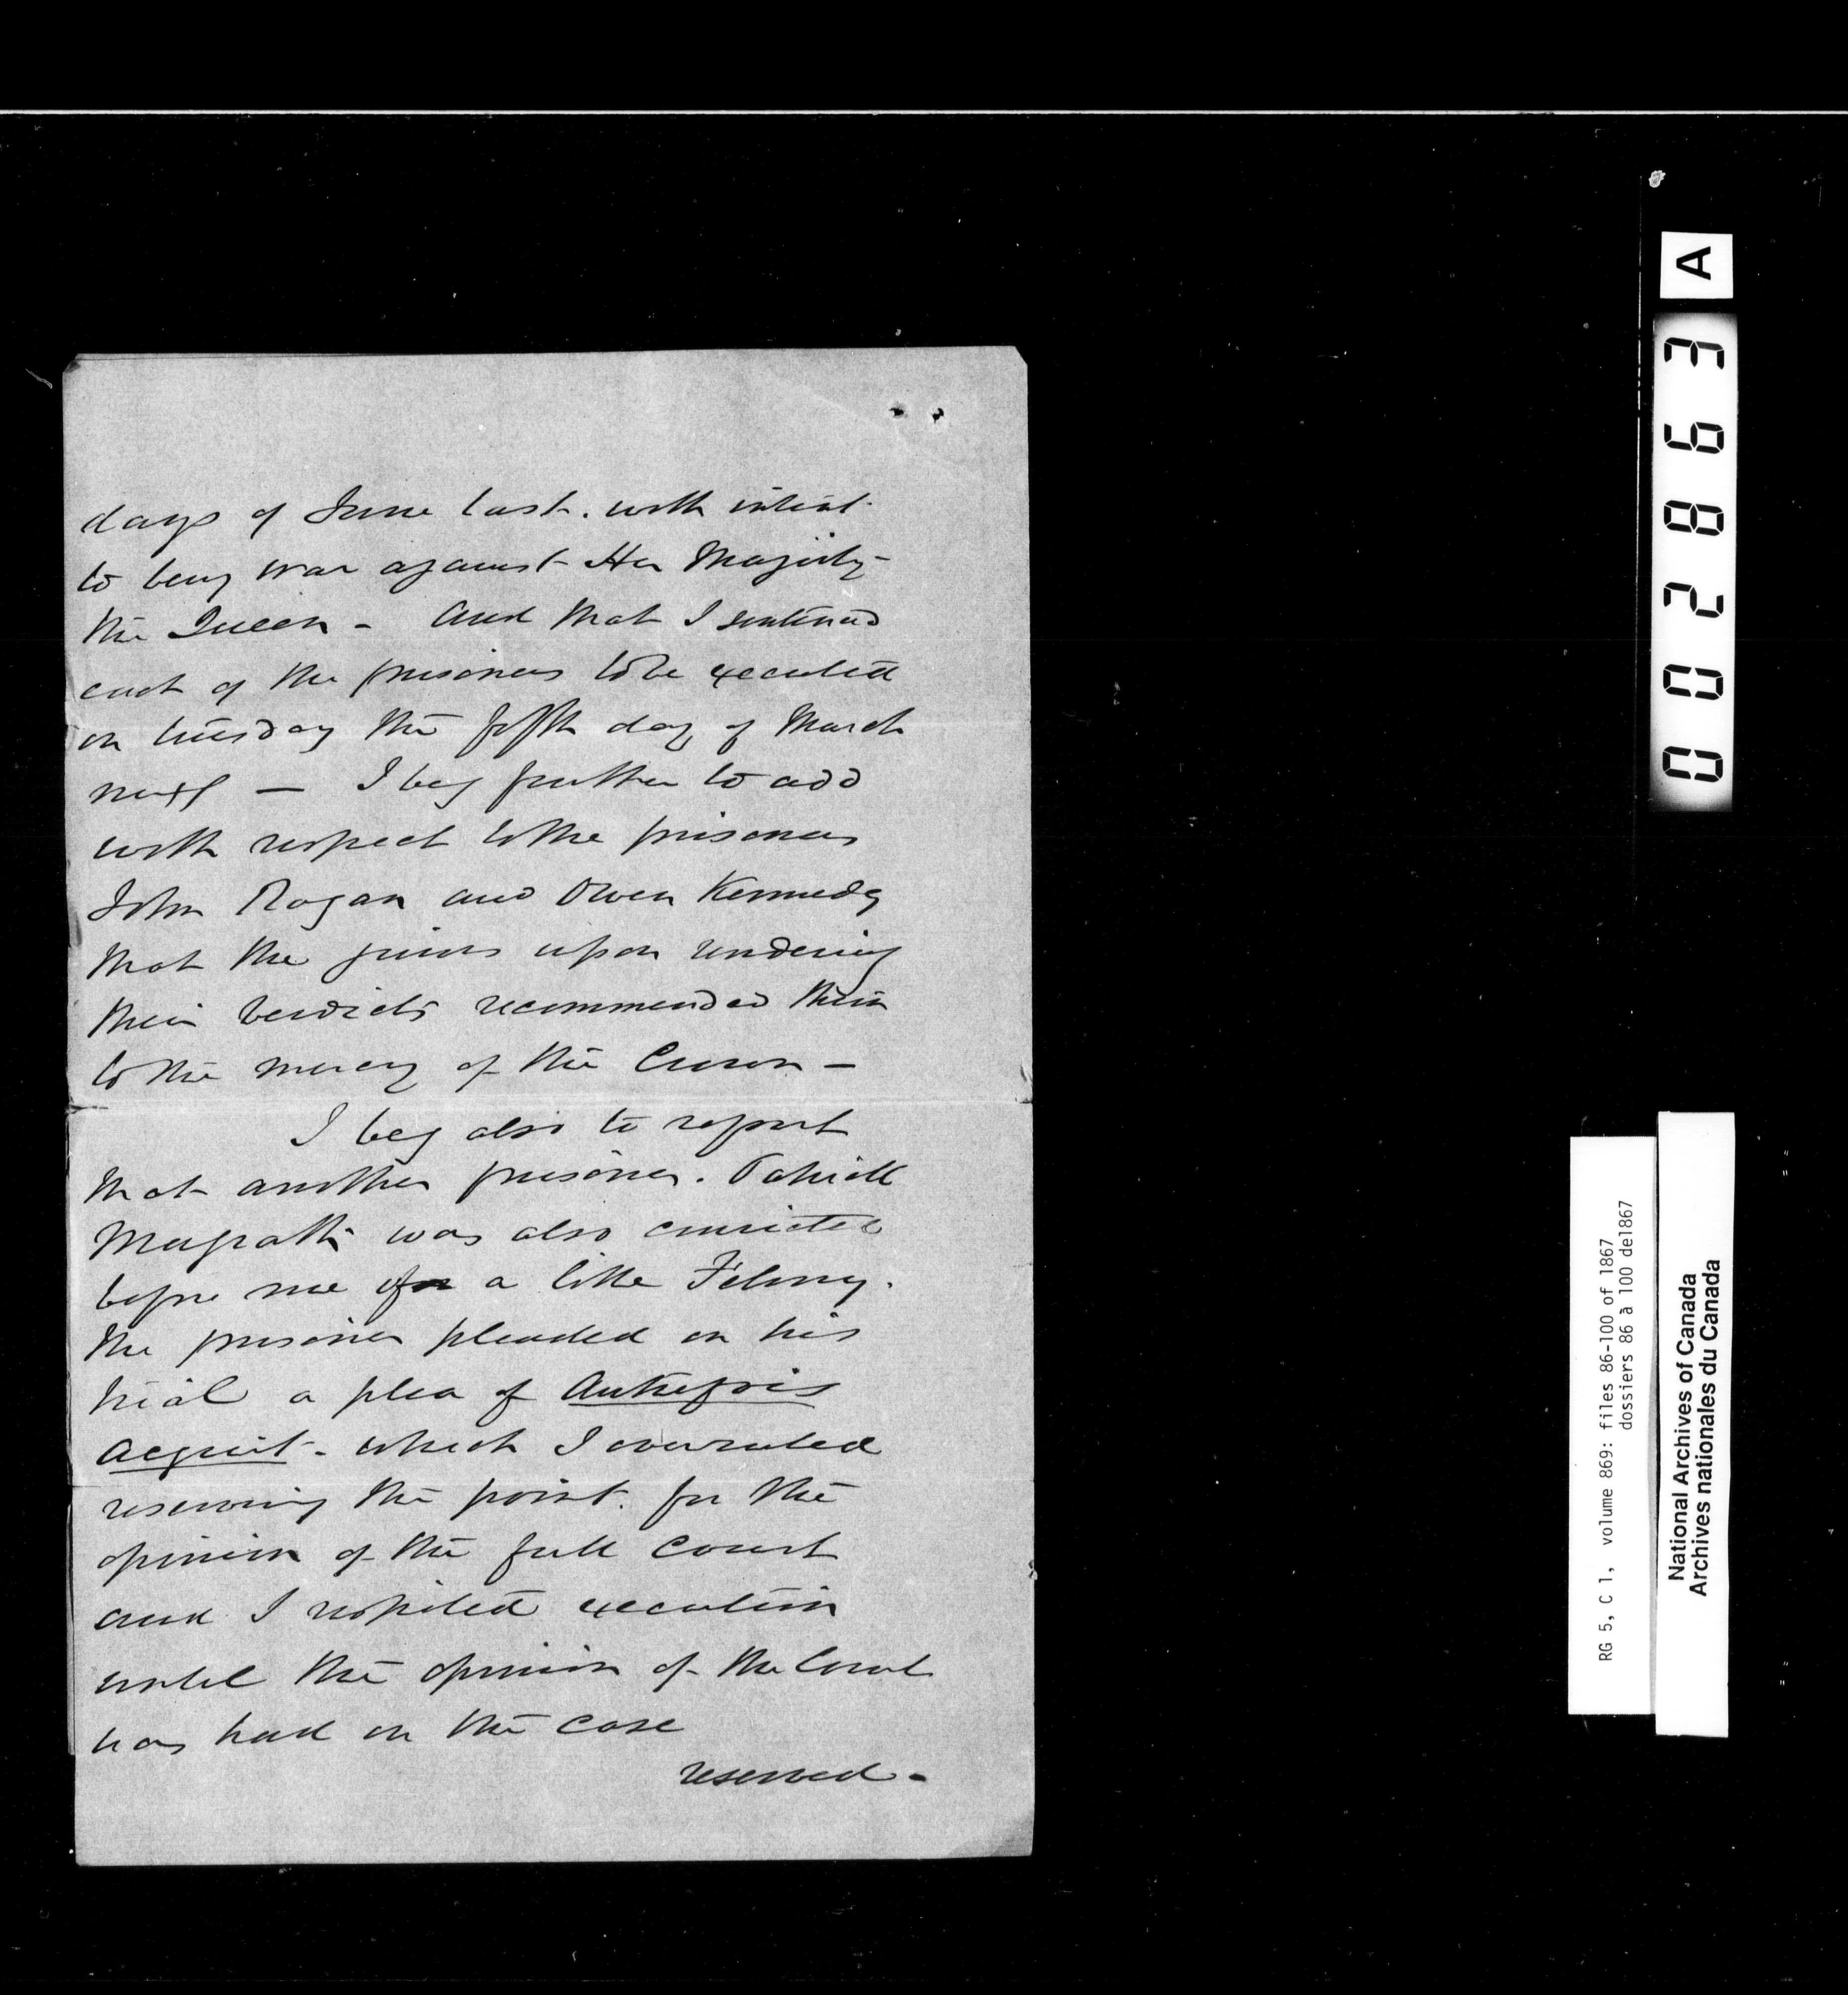 days of June last. with intent
to levy war against Her Majesty
the Queen - And that I sentenced
each of the prisoners to be executed
on tuesday the fifth day of March
next — I beg further to add
with respect to the prisoners
John Rogan and Owen Kennedy
that the juries upon rendering
their verdicts recommended them
to the mercy of the Crown -
I beg also to report
that another prisoner. Patrick
McGrath was also convicted
before me of a like Felony.
The prisoner pleaded on his
trial a plea of Autrefois
acquit - which I overruled
reserving the point. for the
opinion of the full Court
and I respited execution
until the opinion of the Court
was had on the case
reserved -
A
002863
RG 5, C 1, volume 869: files 86-100 of 1867
dossiers 86 à 100 de1867
National Archives of Canada
Archives nationales du Canada